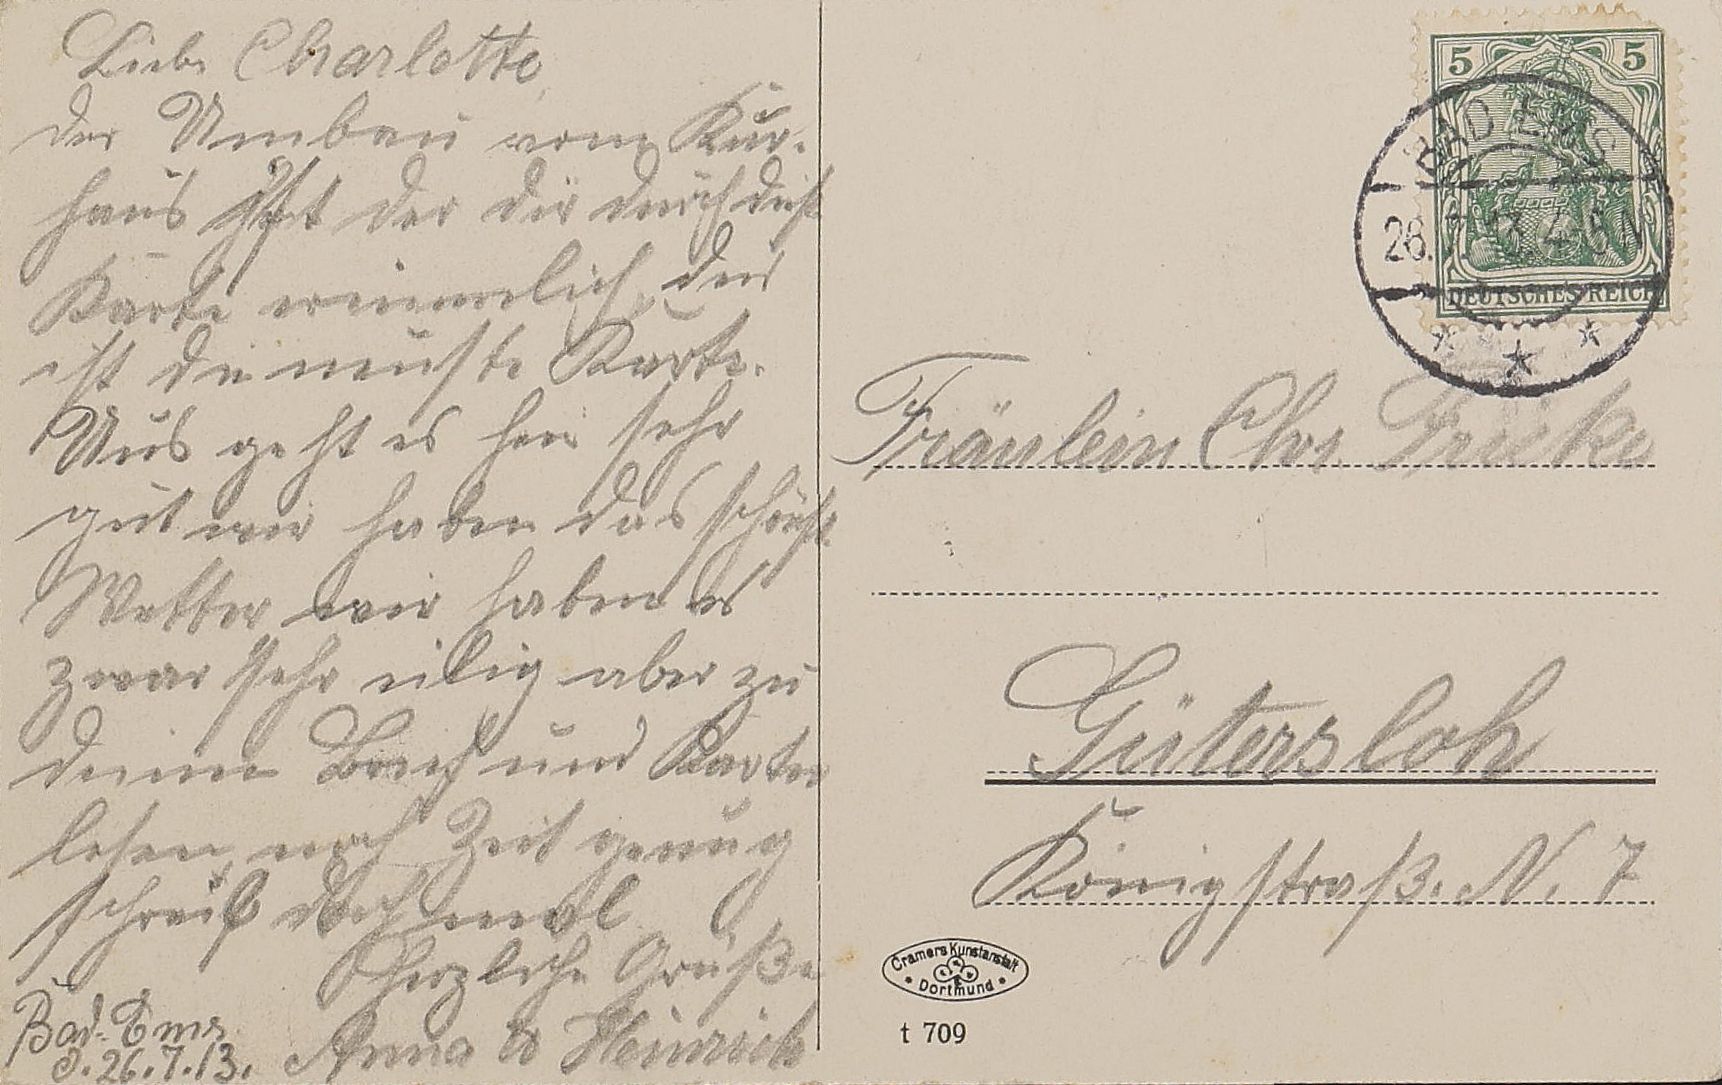 Liebe Charlotte,
der Umbau vom Kur-
haus ist der dir durch diese
Karte
ist die neuste Karte.
Uns geht es hier sehr
gut wir haben das schönste
Wetter wir haben es
zwar sehr eilig aber zu
deinen Brief und Karten
lesen noch Zeit genug
schreib doch mal
Herzliche Grüße
Anna & Heinrich
Bad-Ems
d. 26.7.13.
5 5
BAD EMS
26. 7. 13. 4-5 N
DEUTSCHES REICH
Fräulein Chr.
Gütersloh
Königstraß. N. 7
Cramers Kunstanstalt
Dortmund
t 709